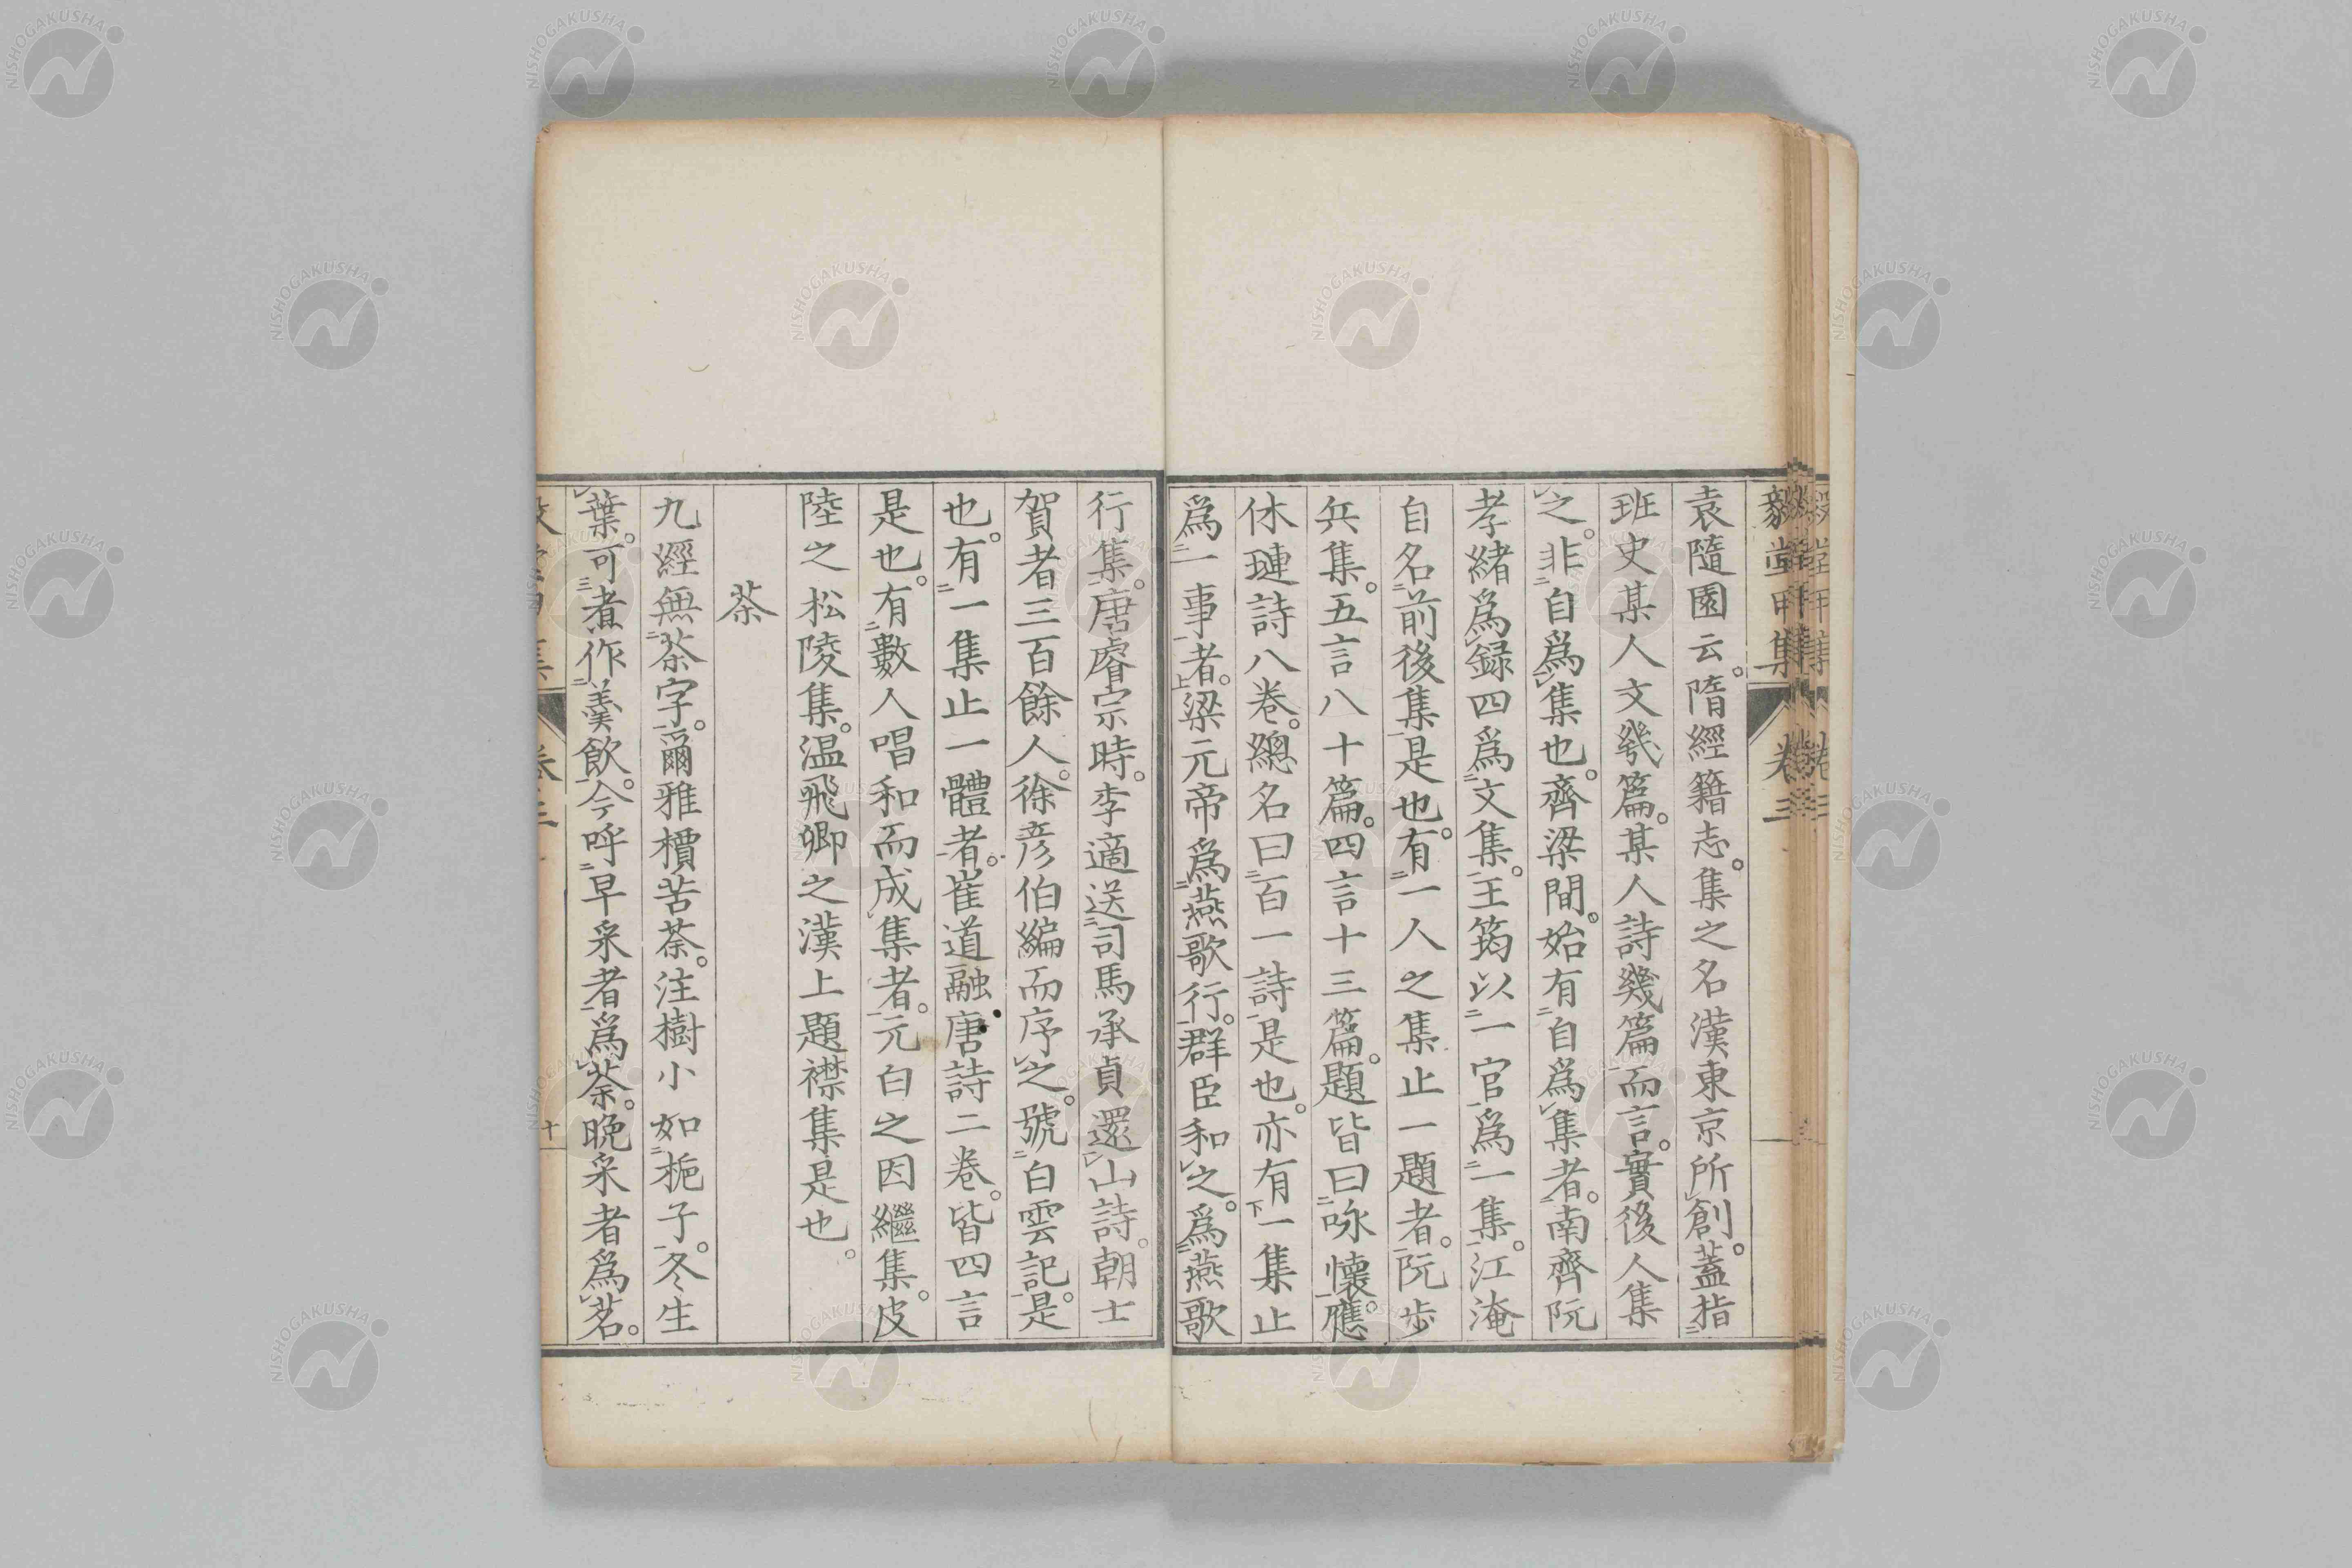 毅堂丙集 卷三
袁隨園云。隋經籍志。集之名漢東京所創。蓋指
班史某人文幾篇。某人詩幾篇而言。實後人集
之。非自爲集也。齊梁間。始有自爲集者。南齊阮
孝緒爲録四爲文集。王筠以一官爲一集。江淹
自名前後集是也。有一人之集止一題者。阮步
兵集。五言八十篇。四言十三篇。題皆曰咏懷。應
休璉詩八卷。總名曰百一詩是也。亦有一集止
爲一事者。梁元帝爲燕歌行。群臣和之。爲燕歌
行集。唐睿宗時。李適送司馬承貞還山詩。朝士
賀者三百餘人。徐彦伯編而序之。號白雲記。是
也。有一集止一體者。崔道融唐詩二卷。皆四言
是也。有數人唱和而成集者。元白之因繼集。皮
陸之松陵集。温飛卿之漢上題襟集是也。
茶
九經無茶字。爾雅檟苦荼。注樹小如梔子。冬生
葉。可煮作羹飲。今呼早采者爲荼。晩采者爲茗。
卷三
十
NISHOGAKUSHA